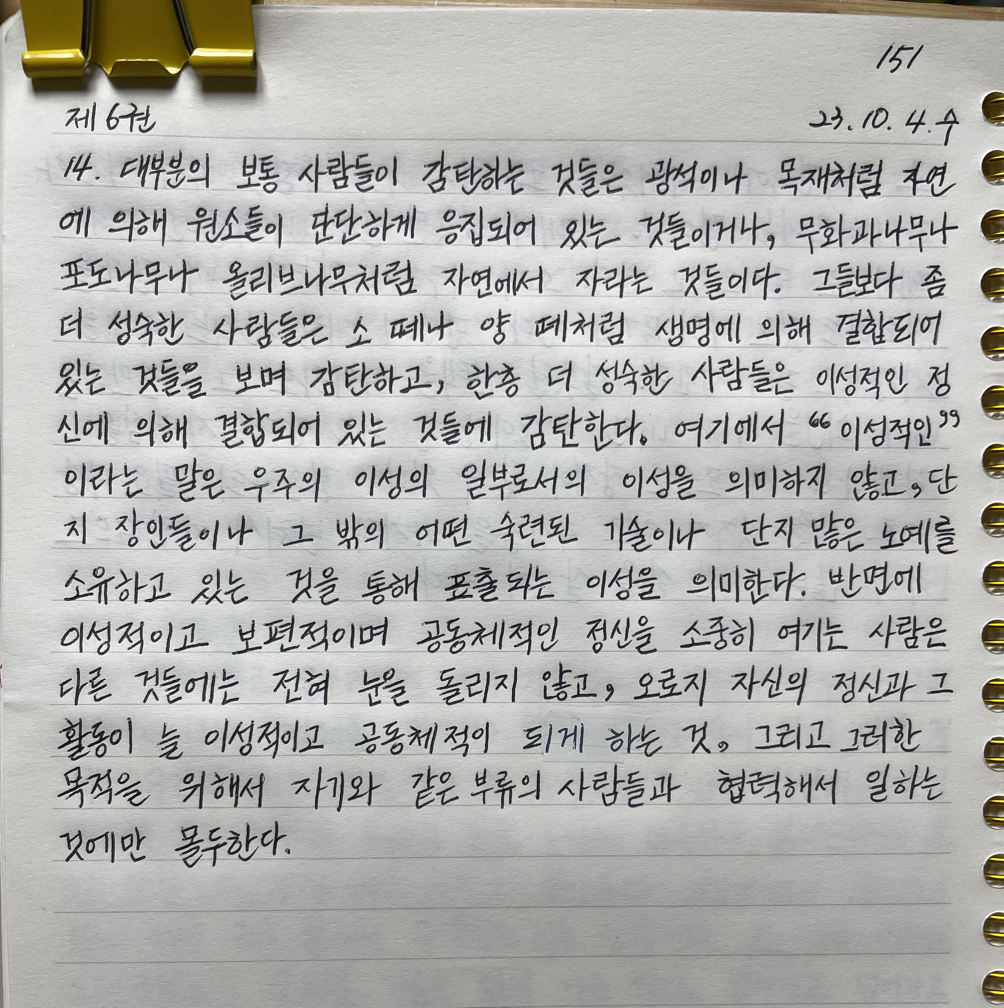 151
제6권 23.10.4.수
14. 대부분의 보통 사람들이 감탄하는 것들은 광석이나 목재처럼 자연
에 의해 원소들이 단단하게 응집되어 있는 것들이거나, 무화과나무나
포도나무나 올리브나무처럼 자연에서 자라는 것들이다. 그들보다 좀
더 성숙한 사람들은 소 떼나 양 떼처럼 생명에 의해 결합되어
있는 것들을 보며 감탄하고, 한층 더 성숙한 사람들은 이성적인 정
신에 의해 결합되어 있는 것들에 감탄한다. 여기에서 “이성적인”
이라는 말은 우주의 이성의 일부로서의 이성을 의미하지 않고, 단
지 장인들이나 그 밖의 어떤 숙련된 기술이나 단지 많은 노예를
소유하고 있는 것을 통해 표출되는 이성을 의미한다. 반면에
이성적이고 보편적이며 공동체적인 정신을 소중히 여기는 사람은
다른 것들에는 전혀 눈을 돌리지 않고, 오로지 자신의 정신과 그
활동이 늘 이성적이고 공동체적이 되게 하는 것, 그리고 그러한
목적을 위해서 자기와 같은 부류의 사람들과 협력해서 일하는
것에만 몰두한다.